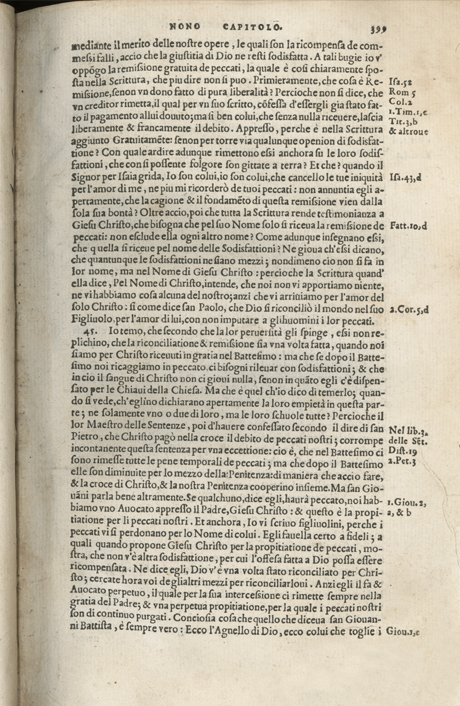 NONO CAPITOLO. 399
mediante il merito delle nostre opere, le quali son la ricompensa de com-
messi falli, accio che la giustitia di Dio ne resti sodisfatta. A tali bugie io v'
oppõgo la remissione gratuita de peccati, la quale è così chiaramente spo-
sta nella Scrittura, che piu dire non si puo. Primieramente, che cosa è Re- Isa.52
missione, senon vn dono fatto di pura liberalità? Percioche non si dice, che Rom 5
vn creditor rimetta, il qual per vn suo scritto, cõfessa d'essergli gia stato fat- Col.2
to il pagamento allui douuto; ma si ben colui, che senza nulla riceuere, lascia 1.Tim.1,c
liberamente & francamente il debito. Appresso, perche è nella Scrittura Tit.3,b
aggiunto Gratuitamẽte: senon per torre via qualunque openion di sodisfat- & altroue
tione? Con quale ardire adunque rimettono essi anchora su le loro sodis-
fattioni, che con sì possente folgore son gittate a terra? Et che? quando il
Signor per Isaia grida, Io son colui, io son colui, che cancello le tue iniquità Isa.43,d
per l'amor di me, ne piu mi ricorderò de tuoi peccati: non annuntia egli a-
pertamente, che la cagione & il fondamẽto di questa remissione vien dalla
sola sua bontà? Oltre accio, poi che tutta la Scrittura rende testimonianza a
Giesu Christo, che bisogna che pel suo Nome solo si riceua la remissione de Fatt.10,d
peccati: non esclude ella ogni altro nome? Come adunque insegnano essi,
che quella si riceue pel nome delle Sodisfattioni? Ne gioua ch'essi dicano,
che quantunque le sodisfattioni ne siano mezzi; nondimeno cio non si fa in
lor nome, ma nel Nome di Giesu Christo: percioche la Scrittura quand'
ella dice, Pel Nome di Christo, intende, che noi non vi apportiamo niente,
ne vi habbiamo cosa alcuna del nostro; anzi che vi arriuiamo per l'amor del
solo Christo: si come dice san Paolo, che Dio si riconciliò il mondo nel suo 2.Cor.5,d
Figliuolo, per l'amor di lui, con non imputare a glihuomini i lor peccati.
45. Io temo, che secondo che la lor peruersità gli spinge, essi non re-
plichino, che la riconciliatione & remissione sia vna volta fatta, quando noi
siamo per Christo riceuuti in gratia nel Battesimo: ma che se dopo il Batte-
simo noi ricaggiamo in peccato, ci bisogni rileuar con sodisfattioni; & che
in cio il sangue di Christo non ci gioui nulla, senon in quãto egli c'è dispen-
sato per le Chiaui della Chiesa. Ma che è quel ch'io dico di temerlo; quan-
do si vede, ch'eglino dichiarano apertamente la loro empietà in questa par-
te; ne solamente vno o due di loro, ma le loro schuole tutte? Percioche il
lor Maestro delle Sentenze, poi d'hauere confessato secondo il dire di san Nel lib.3.
Pietro, che Christo pagò nella croce il debito de peccati nostri; corrompe delle Sẽt.
incontanente questa sentenza per vna eccettione: cio è, che nel Battesimo ci Dist.19
sono rimesse tutte le pene temporali de peccati; ma che dopo il Battesimo 2.Pet.3
elle son diminuite per lo mezzo della Penitenza: di maniera che accio fare,
& la croce di Christo, & la nostra Penitenza cooperino insieme. Ma san Gio-
uãni parla bene altramente. Se qualchuno, dice egli, haurà peccato, noi hab- 1.Giou.2,
biamo vno Auocato appresso il Padre, Giesu Christo: & questo è la propi- a, & b
tiatione per li peccati nostri. Et anchora, Io vi scriuo figliuolini, perche i
peccati vi si perdonano per lo Nome di colui. Egli fauella certo a fideli; a
quali quando propone Giesu Christo per la propitiatione de peccati, mo-
stra, che non v'è altra sodisfattione, per cui l'offesa fatta a Dio possa essere
ricompensata. Ne dice egli, Dio v'è vna volta stato riconciliato per Chri-
sto; cercate hora voi de gli altri mezzi per riconciliarloui. Anzi egli il fa &
Auocato perpetuo, il quale per la sua intercessione ci rimette sempre nella
gratia del Padre; & vna perpetua propitiatione, per la quale i peccati nostri
son di continuo purgati. Conciosia cosa che quello che diceua san Giouan-
ni Battista, è sempre vero: Ecco l'Agnello di Dio, ecco colui che toglie i Giou.1,c